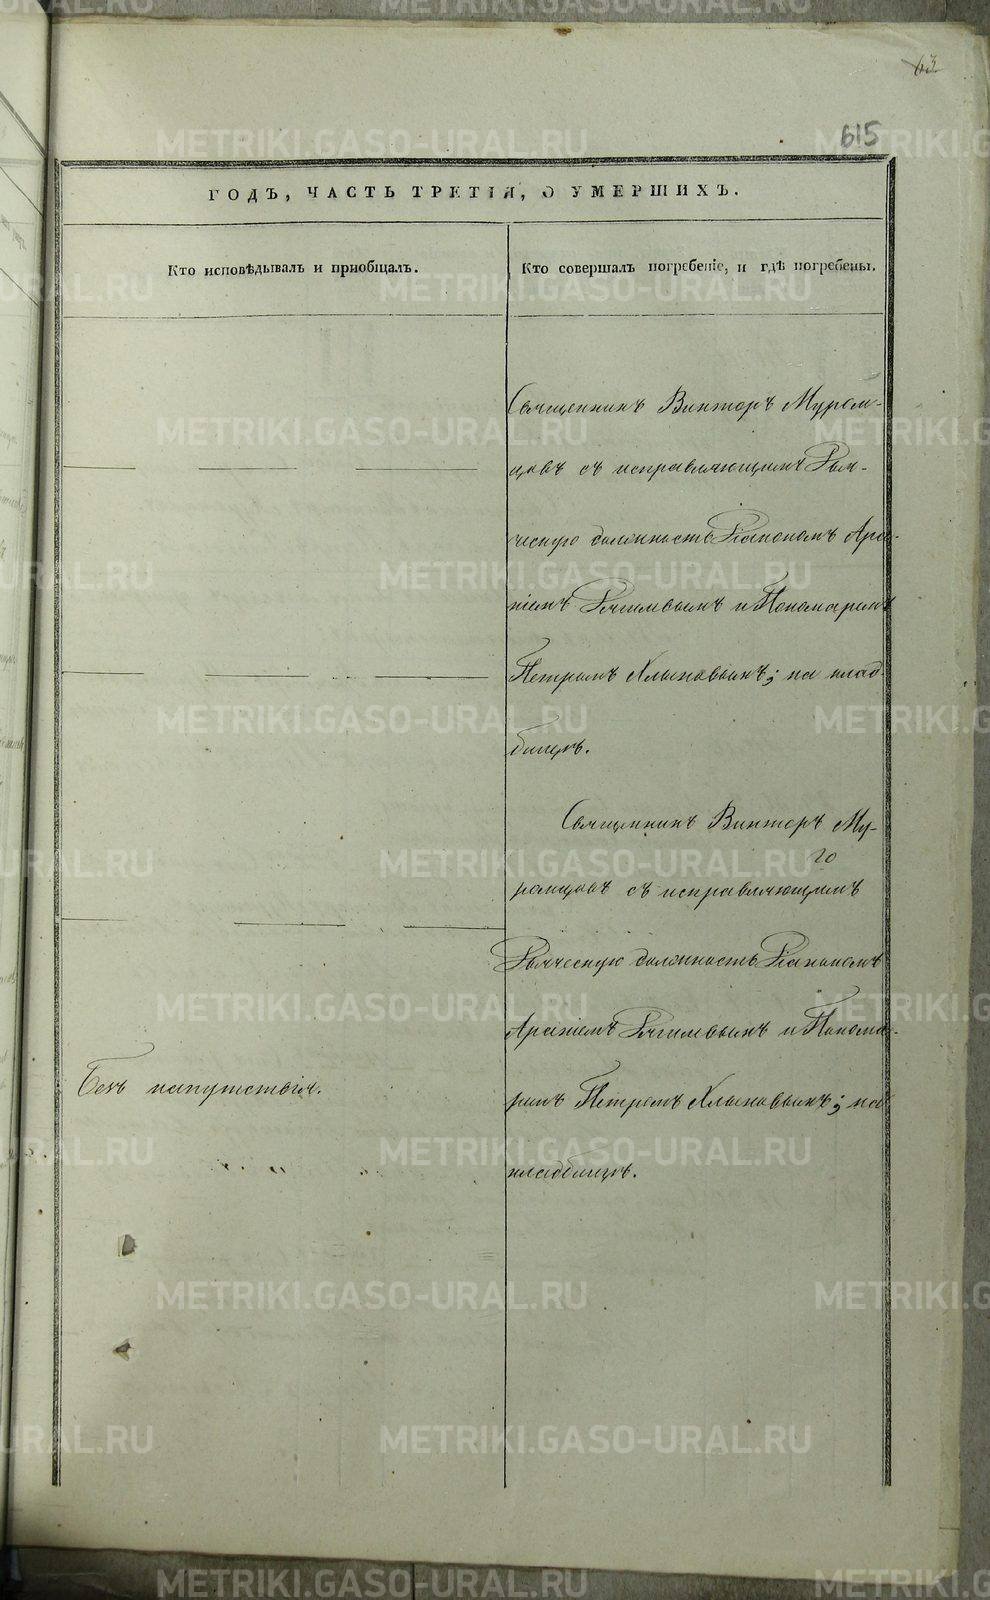 63
615
ГОДЪ, ЧАСТЬ ТРЕТІЯ, О УМЕРШИХЪ.
Кто исповѣдывалъ и приобщалъ.
Кто совершалъ погребеніе, и гдѣ погребены.
Священникъ Викторъ Муром-
цовъ съ исправляющимъ Дья-
ческую должность Діакономъ
и Пономаремъ
Петромъ Хлыновымъ; на клад-
бищѣ.
Священникъ Викторъ Му-
ромцовъ съ исправляющимъ
Дьяческую должность Діакономъ
и Понома-
ремъ Петромъ Хлыновымъ; на
кладбищѣ.
Безъ напутствія.
METRIKI.GASO-URAL.RU